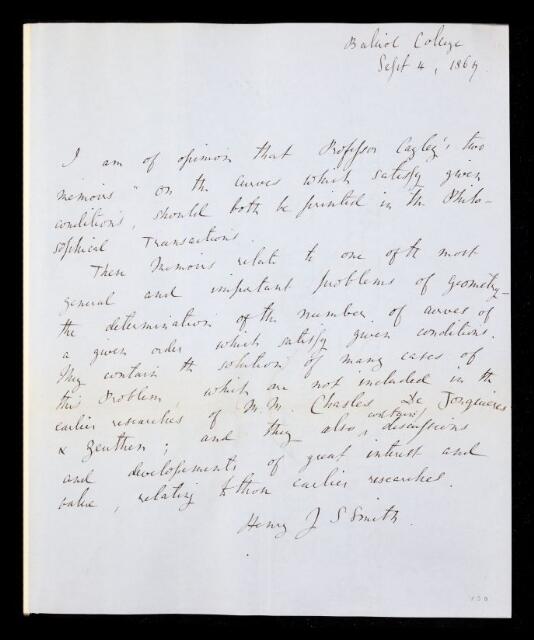 Balliol College
Sept 4, 1867.
I am of opinion that Professor Cayley's two
memoirs "on the curves which satisfy given
conditions, should both be printed in the Philo-
sophical Transactions.
These Memoirs relate to one of the most
general and important problems of Geometry -
the determination of the number of curves of
a given order which satisfy given conditions.
They contain the solution of many cases of
this Problem, which are not included in the
earlier researches of M.M. Chasles De Jonquieres
& Zeuthen; and they also contain discussions
and developements of great interest and
value, relating to those earlier researches.
Henry J S Smith.